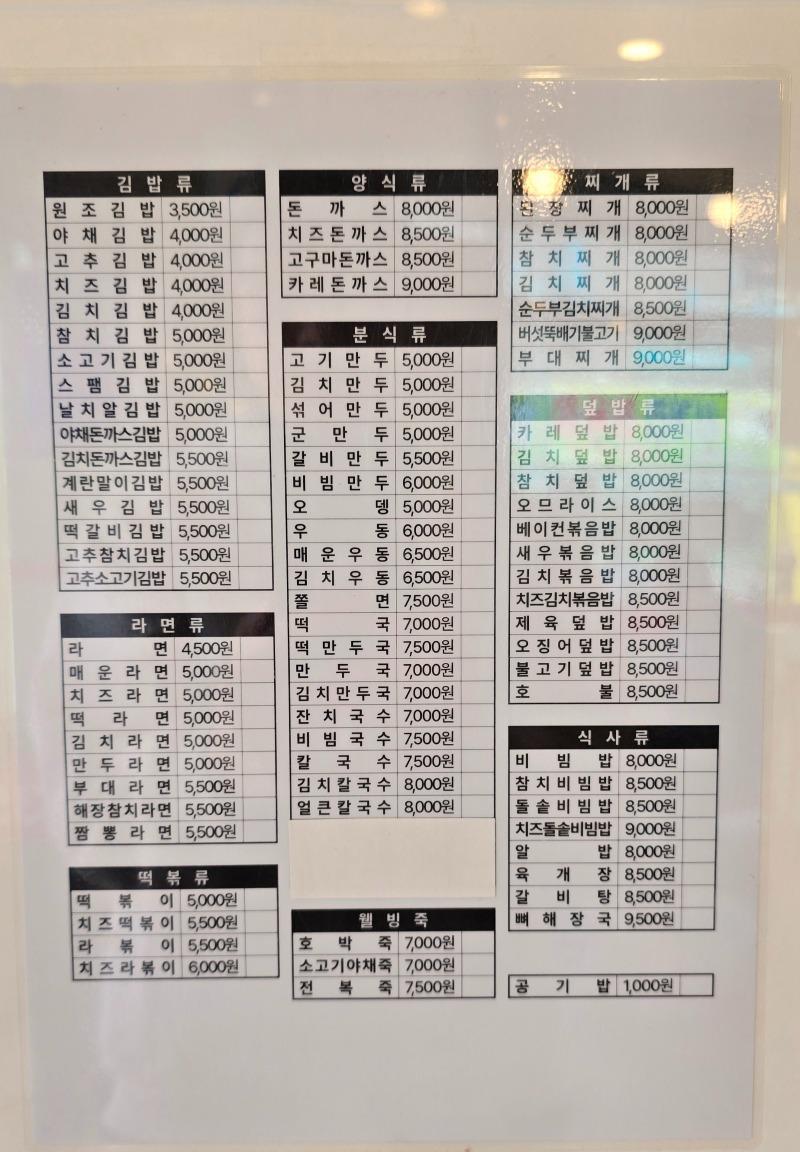 김밥류
원조김밥 3,500원
야채김밥 4,000원
고추김밥 4,000원
치즈김밥 4,000원
김치김밥 4,000원
참치김밥 5,000원
소고기김밥 5,000원
스팸김밥 5,000원
날치알김밥 5,000원
야채돈까스김밥 5,000원
김치돈까스김밥 5,500원
계란말이김밥 5,500원
새우김밥 5,500원
떡갈비김밥 5,500원
고추참치김밥 5,500원
고추소고기김밥 5,500원
라면류
라면 4,500원
매운라면 5,000원
치즈라면 5,000원
떡라면 5,000원
김치라면 5,000원
만두라면 5,000원
부대라면 5,500원
해장참치라면 5,500원
짬뽕라면 5,500원
떡볶류
떡볶이 5,000원
치즈떡볶이 5,500원
라볶이 5,500원
치즈라볶이 6,000원
양식류
돈까스 8,000원
치즈돈까스 8,500원
고구마돈까스 8,500원
카레돈까스 9,000원
분식류
고기만두 5,000원
김치만두 5,000원
섞어만두 5,000원
군만두 5,000원
갈비만두 5,500원
비빔만두 6,000원
오뎅 5,000원
우동 6,000원
매운우동 6,500원
김치우동 6,500원
쫄면 7,500원
떡국 7,000원
떡만두국 7,500원
만두국 7,000원
김치만두국 7,000원
잔치국수 7,000원
비빔국수 7,500원
칼국수 7,500원
김치칼국수 8,000원
얼큰칼국수 8,000원
웰빙죽
호박죽 7,000원
소고기야채죽 7,000원
전복죽 7,500원
찌개류
된장찌개 8,000원
순두부찌개 8,000원
참치찌개 8,000원
김치찌개 8,000원
순두부김치찌개 8,500원
버섯뚝배기불고기 9,000원
부대찌개 9,000원
덮밥류
카레덮밥 8,000원
김치덮밥 8,000원
참치덮밥 8,000원
오므라이스 8,000원
베이컨볶음밥 8,000원
새우볶음밥 8,000원
김치볶음밥 8,000원
치즈김치볶음밥 8,500원
제육덮밥 8,500원
오징어덮밥 8,500원
불고기덮밥 8,500원
호불 8,500원
식사류
비빔밥 8,000원
참치비빔밥 8,500원
돌솥비빔밥 8,500원
치즈돌솥비빔밥 9,000원
알밥 8,000원
육개장 8,500원
갈비탕 8,500원
뼈해장국 9,500원
공기밥 1,000원